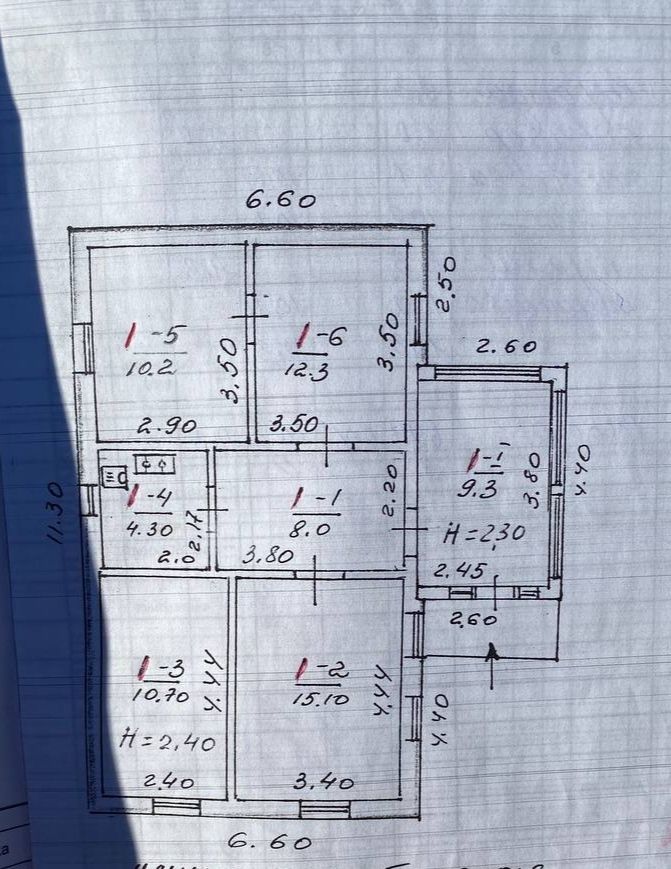 6.60
2.50
I-5
10.2
3.50
2.90
I-6
12.3
3.50
3.50
2.60
I-I
9.3
3.80
4.40
H=2,30
2.45
2.60
11.30
I-4
4.30
2.17
2.0
I-1
8.0
2.20
3.80
I-3
10.70
4.44
H=2,40
2.40
I-2
15.10
4.44
3.40
4.40
6.60